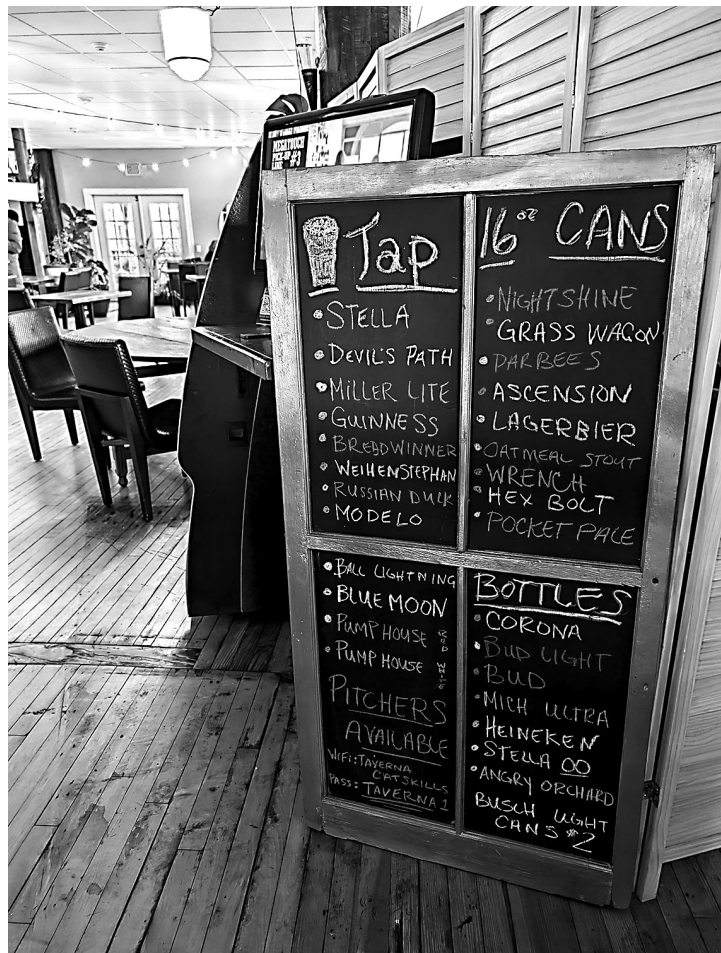 MEGATOUCH
PICK-UP
LINE #3
Tap
STELLA
DEVIL'S PATH
MILLER LITE
GUINNESS
BREADWINNER
WEIHENSTEPHAN
RUSSIAN DUCK
MODELO
BALL LIGHTNING
BLUE MOON
PUMP HOUSE RED
PUMP HOUSE WHITE
PITCHERS
AVAILABLE
WIFI: TAVERNA
CATSKILLS
PASS: TAVERNA1
16oz CANS
NIGHTSHINE
GRASS WAGON
DARBEES
ASCENSION
LAGERBIER
OATMEAL STOUT
WRENCH
HEX BOLT
POCKET PALE
BOTTLES
CORONA
BUD LIGHT
BUD
MICH ULTRA
HEINEKEN
STELLA 00
ANGRY ORCHARD
BUSCH LIGHT
CANS $2